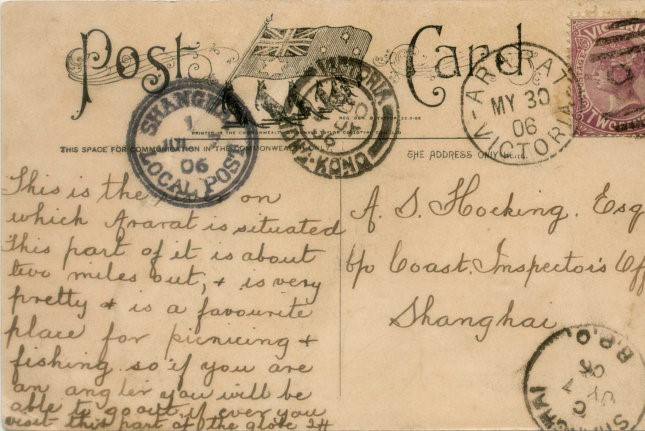 Post Card
VICTORIA
HONG-KONG
ARARAT
MY 30
06
VICTORIA
SHANGHAI
1
06
LOCAL POST
THIS SPACE FOR COMMUNICATION IN THE COMMONWEALTH ONLY.
THE ADDRESS ONLY
This is the on
which Ararat is situated
This part of it is about
two miles out, & is very
pretty & is a favourite
place for picnicing &
fishing so if you are
an angler you will be
able to go out if ever you
visit this part of the globe
A. S. Hocking. Esq
c/o Coast. Inspector's Off
Shanghai
SHANGHAI
B.P.O.